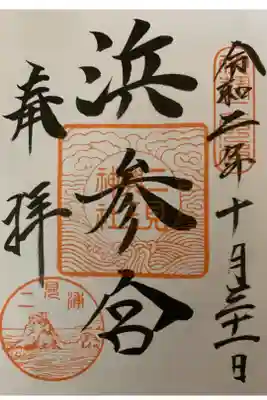 令和二年十月三十一日
浜参宮
二見
神社
奉拝
二見浦